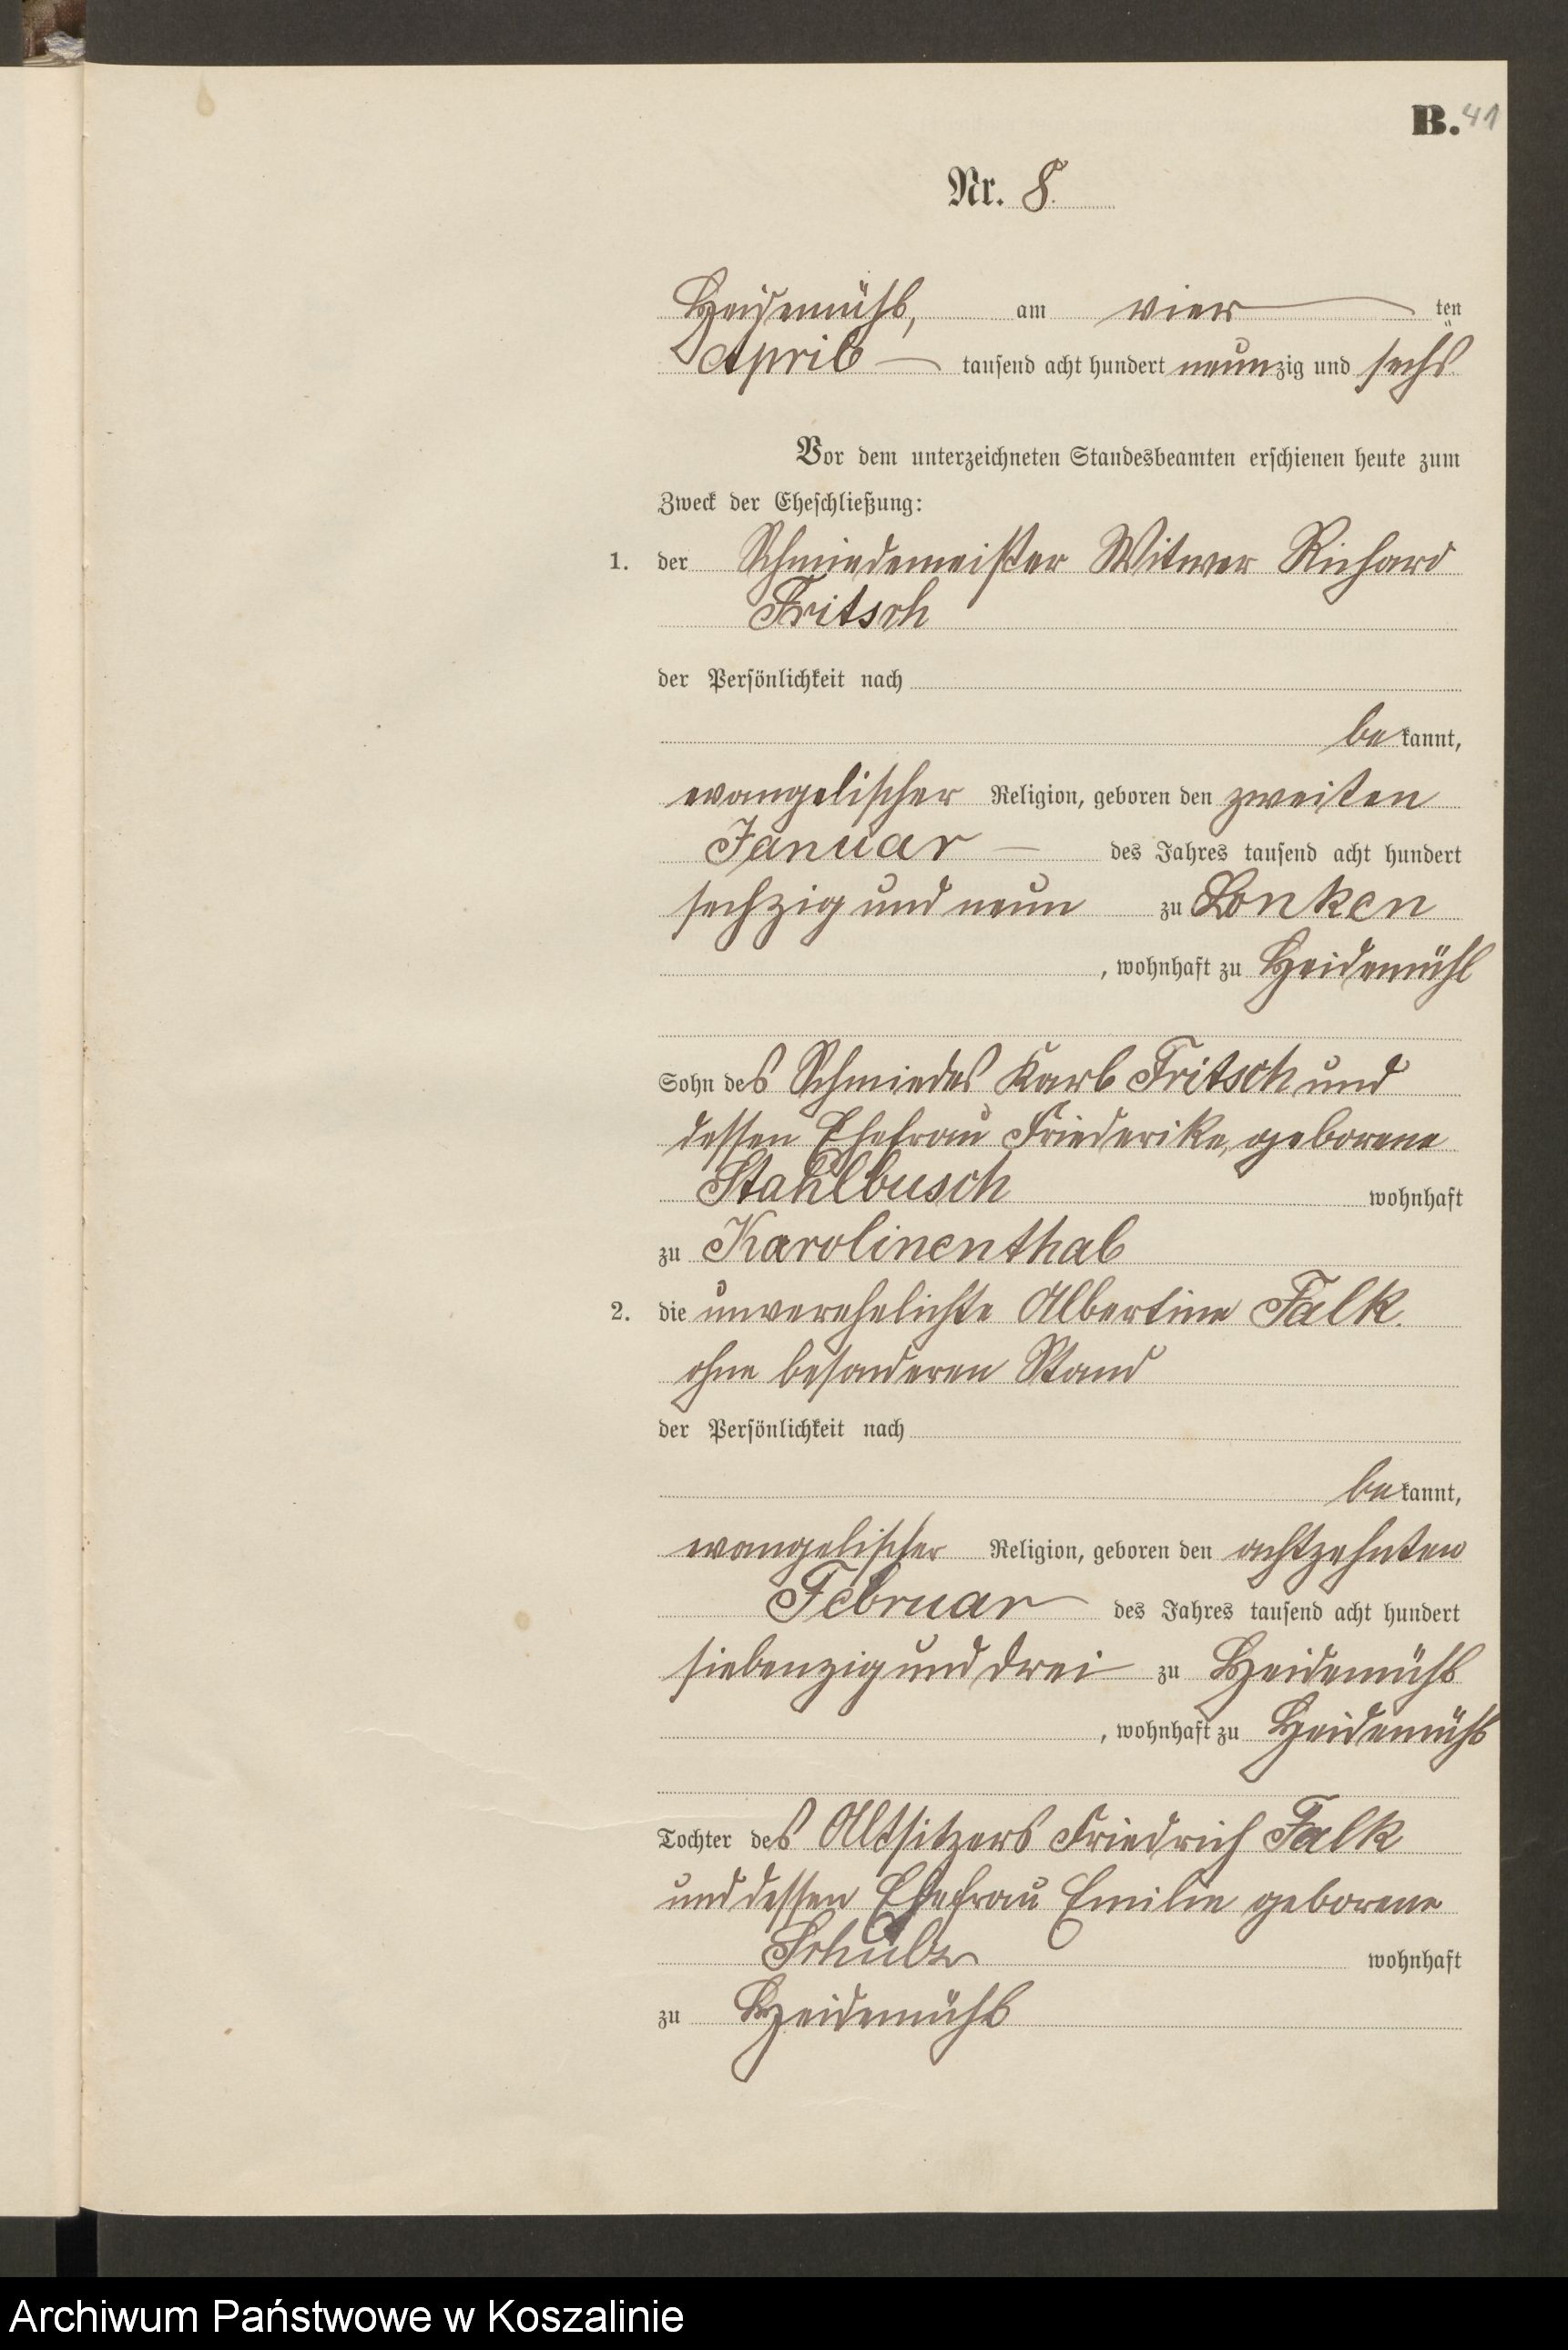 B. 41
Nr. 8.
Heidemühl, am vier ten
April tausend acht hundert neunzig und sechs
Vor dem unterzeichneten Standesbeamten erschienen heute zum
Zweck der Eheschließung:
1. der Schmiedemeister Witwer Richard
Fritsch
der Persönlichkeit nach
bekannt,
evangelischer Religion, geboren den zweiten
Januar des Jahres tausend acht hundert
sechzig und neun zu Lonken
, wohnhaft zu Heidemühl
Sohn des Schmiedes Karl Fritsch und
dessen Ehefrau Friederike, geborene
Stahlbusch wohnhaft
zu Karolinenthal
2. die unverehelichte Albertine Falk.
ohne besonderen Stand
der Persönlichkeit nach
bekannt,
evangelischer Religion, geboren den achtzehnten
Februar des Jahres tausend acht hundert
siebenzig und drei zu Heidemühl
, wohnhaft zu Heidemühl
Tochter des Altsitzers Friedrich Falk
und dessen Ehefrau Emilie geborene
Schulz wohnhaft
zu Heidemühl
Archiwum Państwowe w Koszalinie